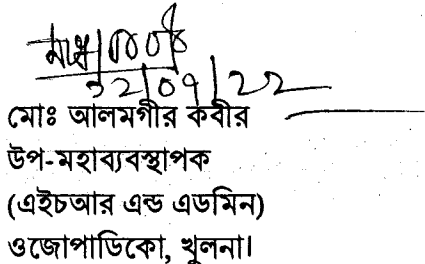 ১২/০৭/২২
মোঃ আলমগীর কবীর
উপ-মহাব্যবস্থাপক
(এইচআর এন্ড এডমিন)
ওজোপাডিকো, খুলনা।